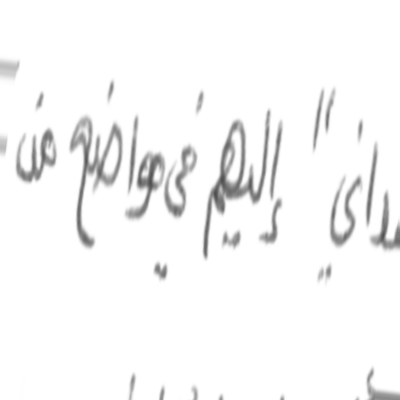 " إليهم في مواضع من